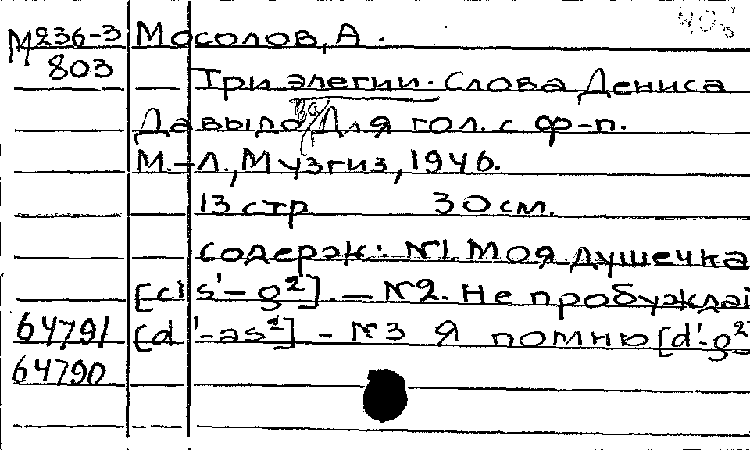 М236-3 Мосолов, А.
803 Три элегии. Слова Дениса
Давыдова Для гол. с ф-п.
М.-Л., Музгиз, 1946.
13 стр 30 см.
содерж: №1. Моя душечка
[cis'-g²]. – №2. Не пробуждай
64791 [d'-as²] – №3 Я помню [d'-g²
64790